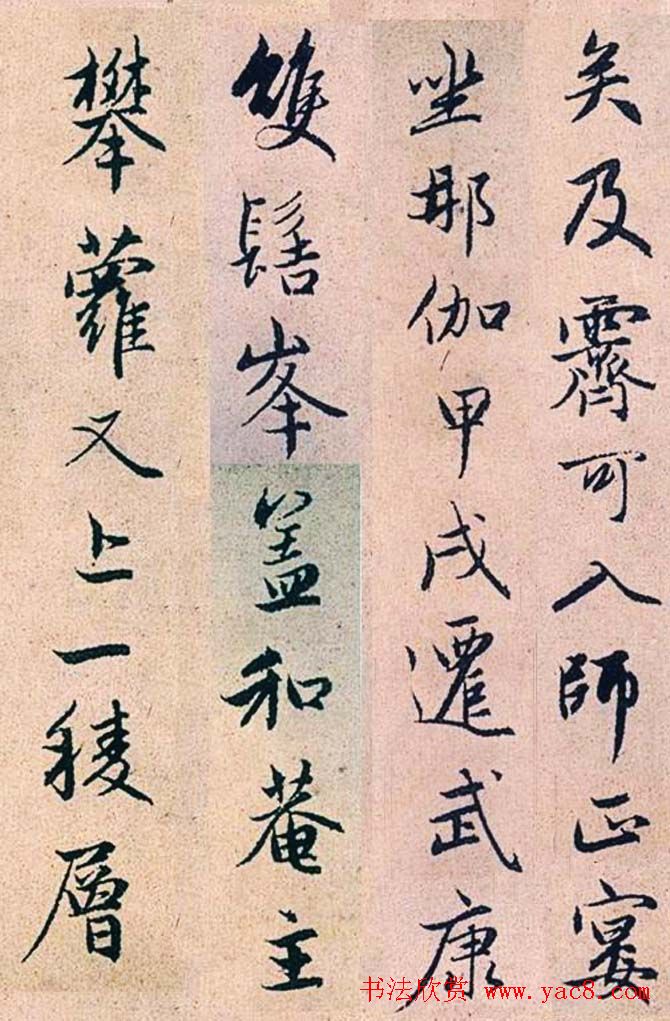 矣及霽可入師正宴
坐那伽甲戌遷武康
雙髻峯蓋和菴主
攀蘿又上一稜層
书法欣赏 www.yac8.com